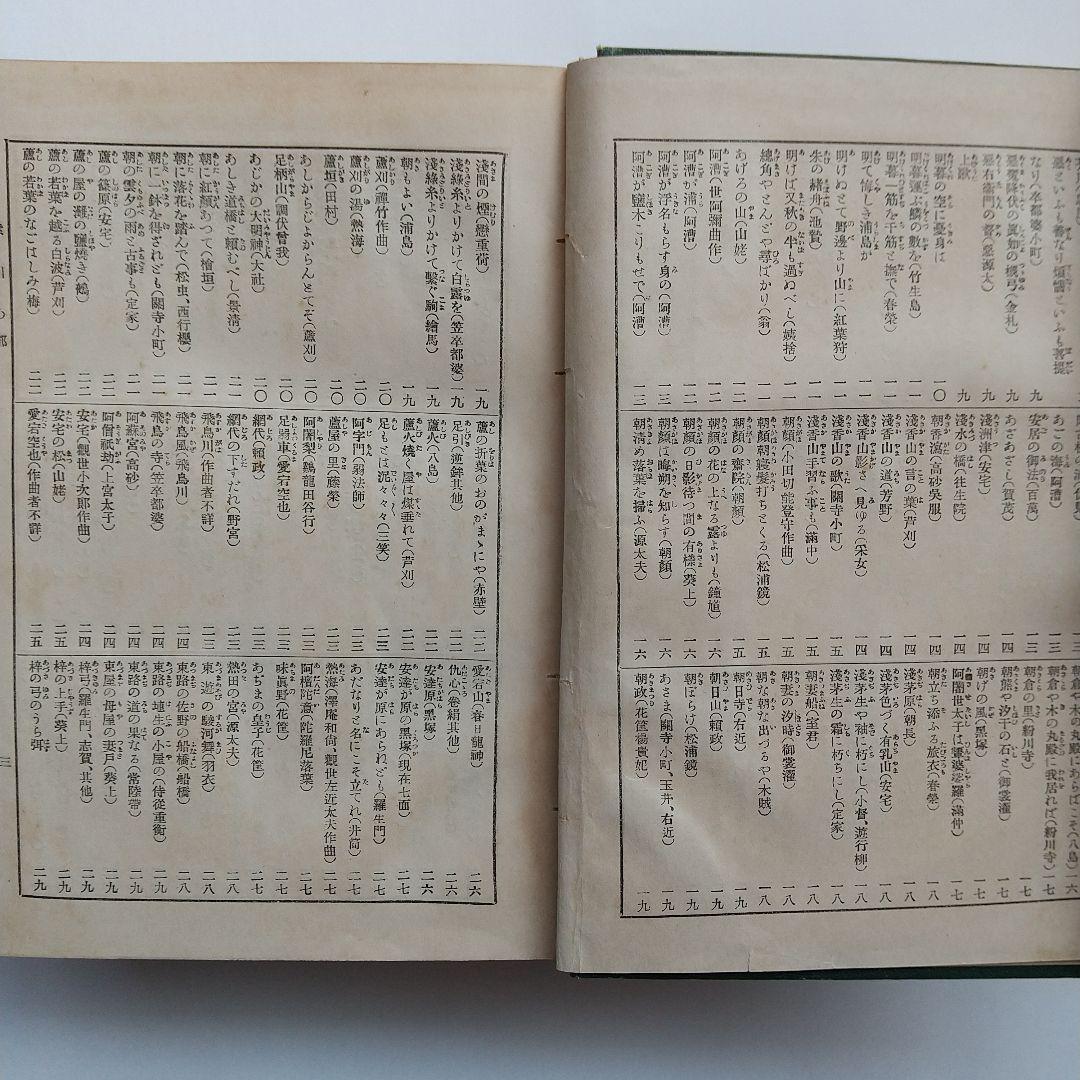 なり(卒都婆小町) 九
惡鬼降伏の眞如の槻弓(金札) 九
惡右衛門の督(惡源太) 九
上歌 九
明暮の空に憂身は 一〇
明暮運ぶ鱗の數を(竹生島) 一一
明暮一筋を千筋と撫で(春榮) 一一
明て悔しき浦島が 一一
明けぬとて野邊より山に(紅葉狩) 一一
朱の赭舟(池贄) 一一
明けば又秋の半も過ぬべし(姨捨) 一一
總角やとんどや尋ばかり(翁) 一一
あげろの山(山姥) 一二
阿漕(世阿彌曲作) 一二
阿漕が浦(阿漕) 一二
阿漕が浮名もらす身の(阿漕) 一三
阿漕が鹽木こりもせで(阿漕) 一三
あごの海(阿漕) 一三
安居の御法(百萬) 一三
あさあさし(賀茂) 一四
淺洲津(安宅) 一四
淺水の橋(往生院) 一四
朝香潟(高砂吳服) 一四
淺香山の言の葉(芦刈) 一四
淺香山の道(芳野) 一四
淺香山影さへ見ゆる(采女) 一四
淺香山の歌(關寺小町) 一五
淺香山手習ふ事も(滿中) 一五
朝顏(小田切能登守作曲) 一五
朝顏朝寢髮打ちとくる(松浦鏡) 一五
朝顏の齋院(朝顏) 一五
朝顏の花の上なる露よりも(鐘馗) 一六
朝顏の日影待つ間の有樣(葵上) 一六
朝顏は晦朔を知らず(朝顏) 一六
朝淸め落葉を掃ふ(源太夫) 一六
朝倉や木の丸殿にあらばこそ(八島) 一六
朝倉や木の丸殿に我居れば(粉川寺) 一七
朝倉の里(粉川寺) 一七
朝熊や汐干の石と(御裳濯) 一七
朝げの風(黑塚) 一七
阿闍世太子は(滿仲) 一七
朝立ち添ふる旅衣(春榮) 一八
淺茅原(朝長) 一八
淺茅色づく有乳山(安宅) 一八
淺茅生や袖に朽にし(小督、遊行柳) 一八
淺茅生の霜に朽ちにし(定家) 一八
朝妻船(室君) 一八
朝妻の汐時(御裳濯) 一八
朝な朝な出づるや(木賊) 一八
朝日寺(右近) 一九
朝日山(賴政) 一九
朝ぼらけ(松浦鏡) 一九
あさま(關寺小町、玉井、右近) 一九
朝政(花筐楊貴妃) 一九
淺間の煙(戀重荷) 一九
淺綠糸よりかけて白露を(笠卒都婆) 一九
淺綠糸よりかけて繫ぐ駒(繪馬) 一九
朝もよい(浦島) 一九
蘆刈(禪竹作曲) 二〇
蘆刈の湯(熱海) 二〇
蘆垣(田村) 二〇
あしからじよからんとてぞ(蘆刈) 二〇
足柄山(調伏曾我) 二〇
あじかの大明神(大社) 二〇
あしき道橋と賴むべし(景淸) 二一
朝に紅顏あつて(檜垣) 二一
朝に落花を踏んで(松虫、西行櫻) 二一
朝に一鉢を得ざれども(關寺小町) 二一
朝の雲夕の雨と古事も(定家) 二一
蘆の篠原(安宅) 二二
蘆の屋の灘の鹽燒き(鵺) 二二
蘆の若葉を越る白波(芦刈) 二二
蘆の若葉のなごはしみ(梅) 二二
蘆の折葉のおのがまゝにや(赤壁) 二二
足引(逆鉾其他) 二二
蘆火(八島) 二二
蘆火燒く屋は煤垂れて(芦刈) 二二
足もとは泥々々(三笑) 二三
阿字門(弱法師) 二三
蘆屋の里(藤榮) 二三
阿闍梨(鷄龍田谷行) 二三
足弱車(愛宕空也) 二三
網代(賴政) 二三
網代の下すだれ(野宮) 二三
飛鳥川(作曲者不詳) 二三
飛鳥風(飛鳥川) 二四
飛鳥の寺(笠卒都婆) 二四
阿蘇宮(高砂) 二四
阿僧祇劫(上宮太子) 二四
安宅(觀世小次郎作曲) 二四
安宅の松(山姥) 二五
愛宕空也(作曲者不詳) 二五
愛宕山(春日龍神) 二六
仇心(卷絹其他) 二六
安達原(黑塚) 二六
安達が原の黑塚(現在七面) 二七
安達が原にあられども(羅生門) 二七
あだなりと名にこそ立てれ(井筒) 二七
熱海(澤庵和尙、觀世左近太夫作曲) 二七
阿檀陀意(陀羅尼落葉) 二七
味眞野(花筐) 二七
あぢまの皇子(花筐) 二七
熱田の宮(源太夫) 二八
東遊の駿河舞(羽衣) 二八
東路の佐野の船橋(船橋) 二八
東路の埴生の小屋の(侍從重衡) 二九
東路の道の果なる(常陸帶) 二九
東屋の母屋の妻戶(葵上) 二九
梓弓(羅生門、志賀、其他) 二九
梓の上手(葵上) 二九
梓の弓のうら弭 二九
三